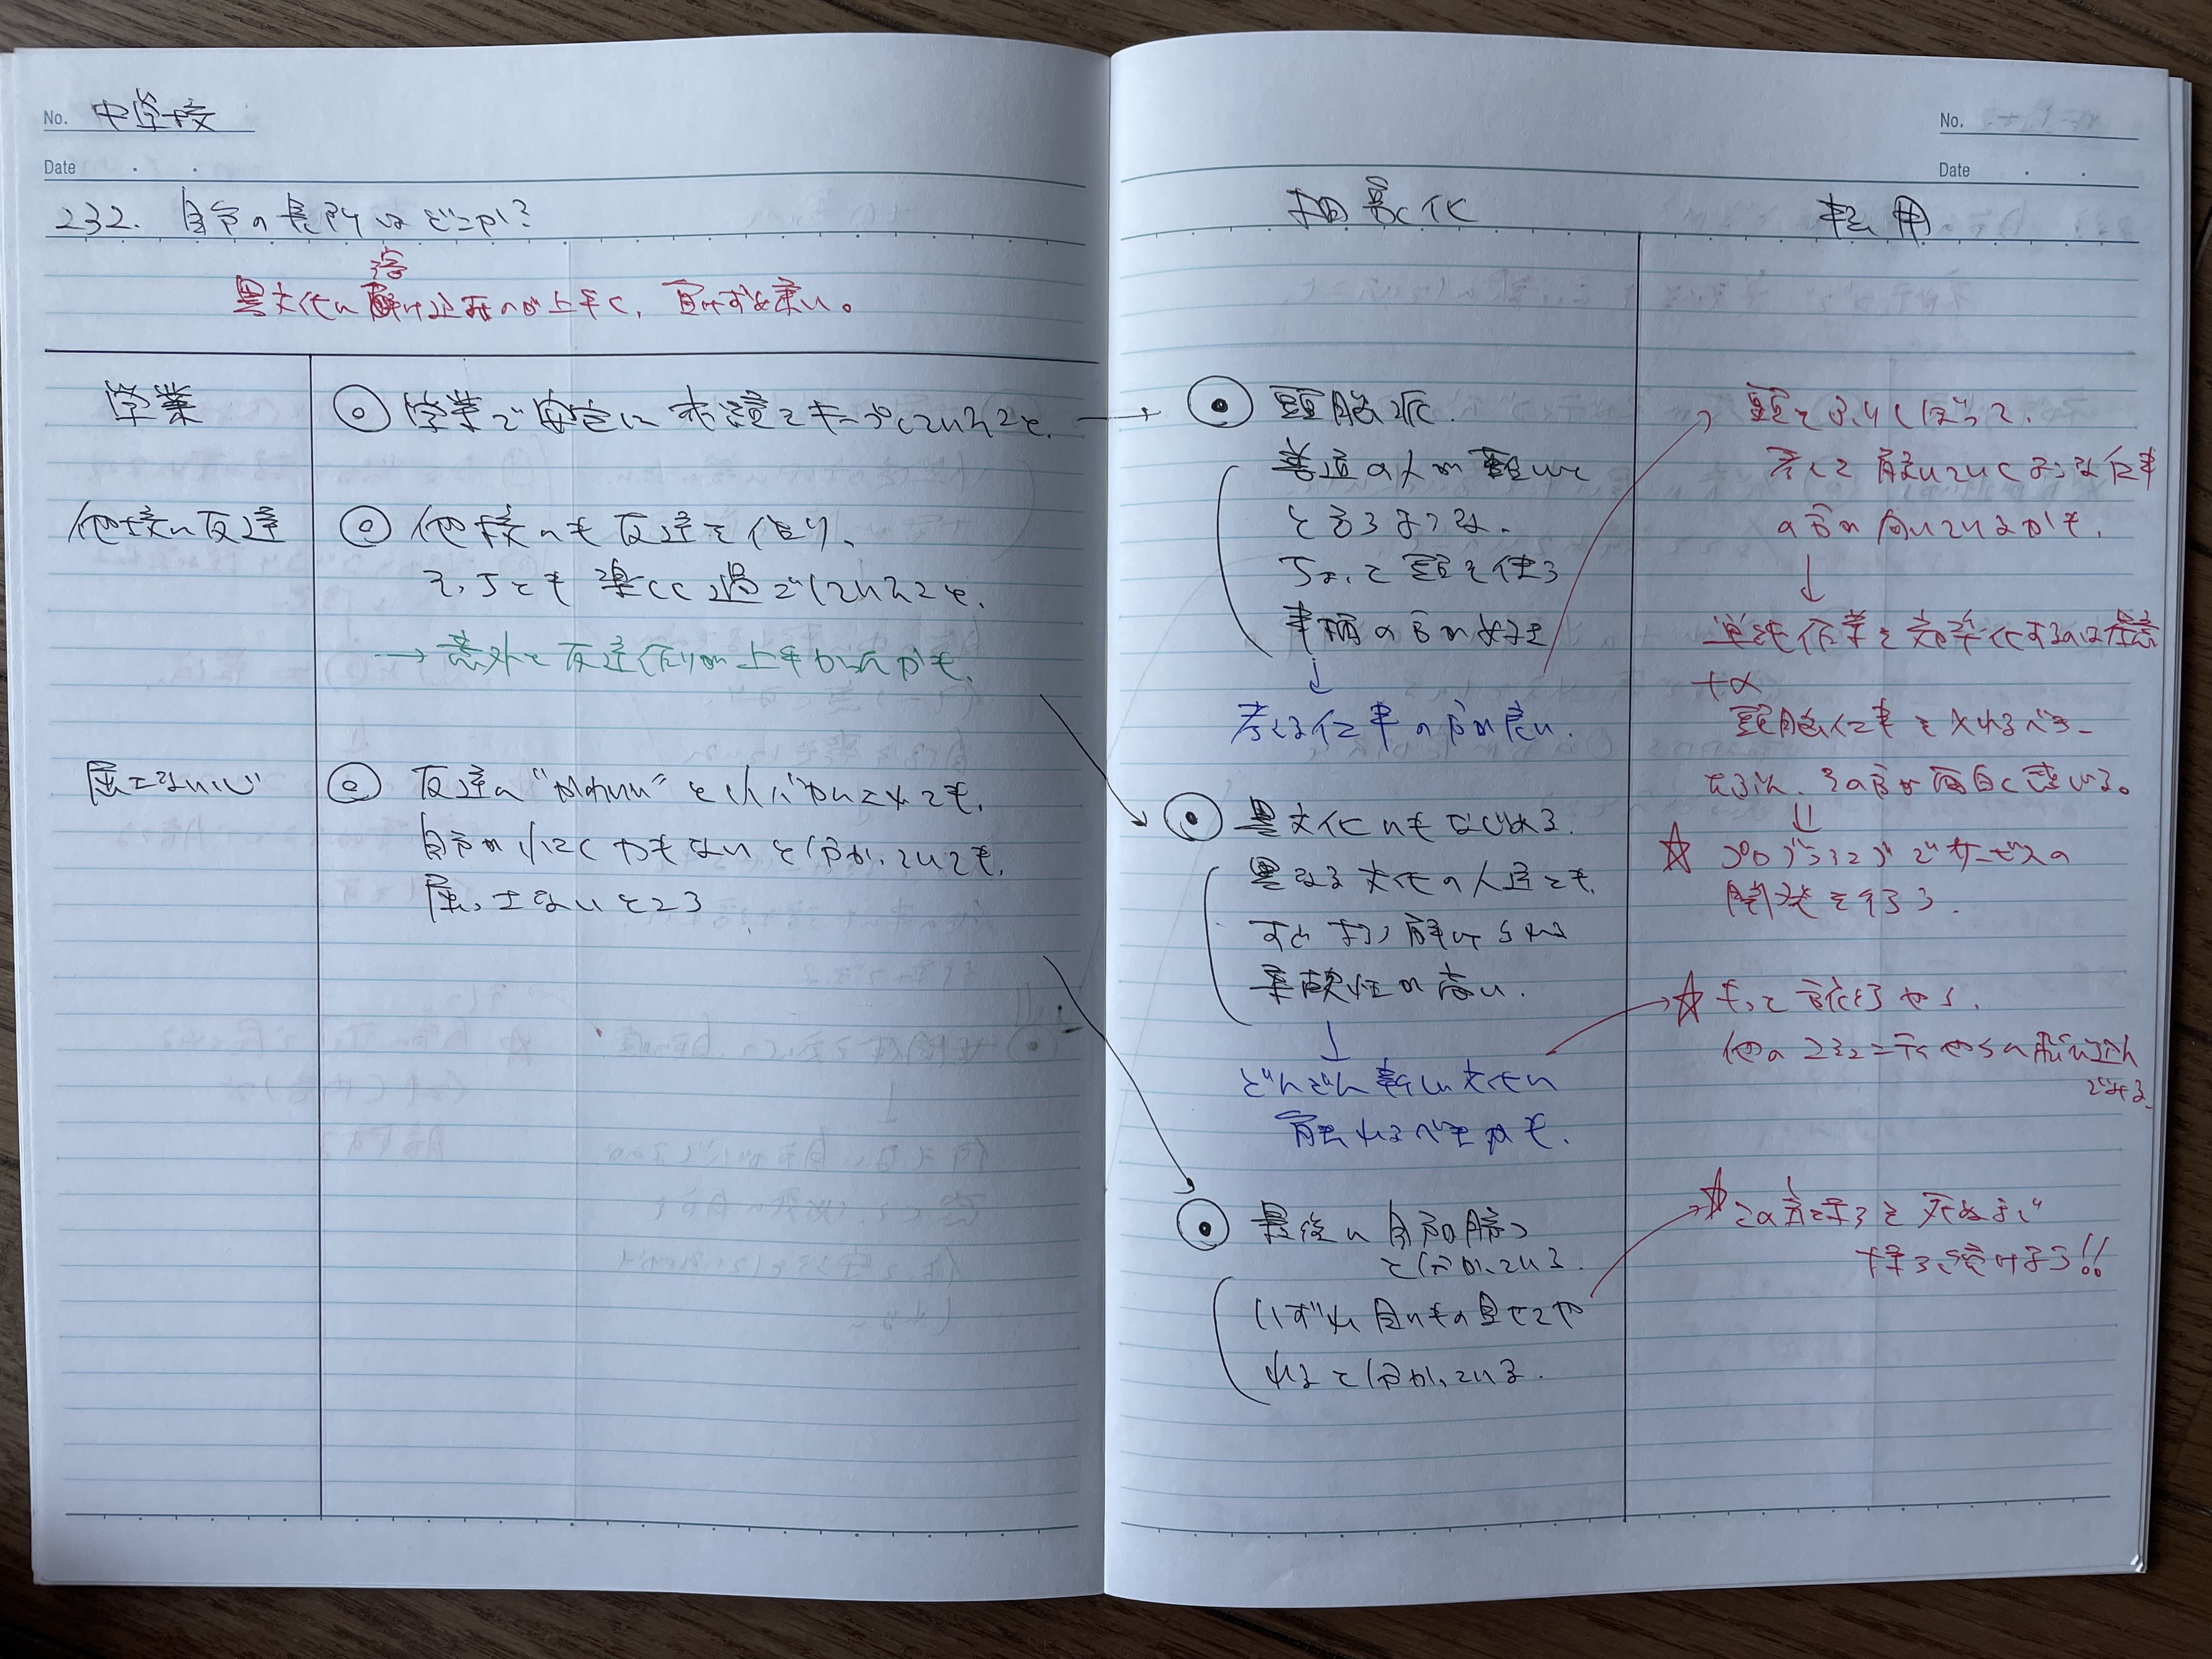 No. 中学校
Date
232. 自分の長所はどこか?
溶
異文化に け込むのが上手く、負けず嫌い。
学業
◎ 学業で安定に 成績をキープしていたこと。
他校に友達
◎ 他校にも友達を作り、
そいつらとも楽しく過ごしていたこと。
→ 意外と友達作りが上手かったかも。
屈さない心
◎ 友達に"かわいい"とか いわれても、
自分が かっこよくもないと分かっていても、
屈っさないところ
No.
Date
抽象化
転用
◎ 頭脳派。
普通の人が頭いい
と言うような、
頭を使う
事柄の方が好き
↓
考える仕事の方が良い。
◎ 異文化にもなじめる。
異なる文化の人達とも、
すぐ 打ち解けられる
柔軟性が高い。
↓
どんどん新しい文化に
触れるべきかも。
◎ 最後に自分が勝つ
と分かっている。
いずれ良いもの見せてや
れると分かっている。
頭をふりしぼって、
考えて解いていくような仕事
の方が向いているかも。
↓
単純作業を効率化するのは得意
+α
頭脳仕事を入れるべき。
なぜなら、その方が面白く感じる。
⇓
☆ プログラミングでサービスの
開発を行う。
☆ もっと旅行やら、
他のコミュニティやらに飛び込んで
みる
☆ この方法を死ぬまで
採り続けよう!!